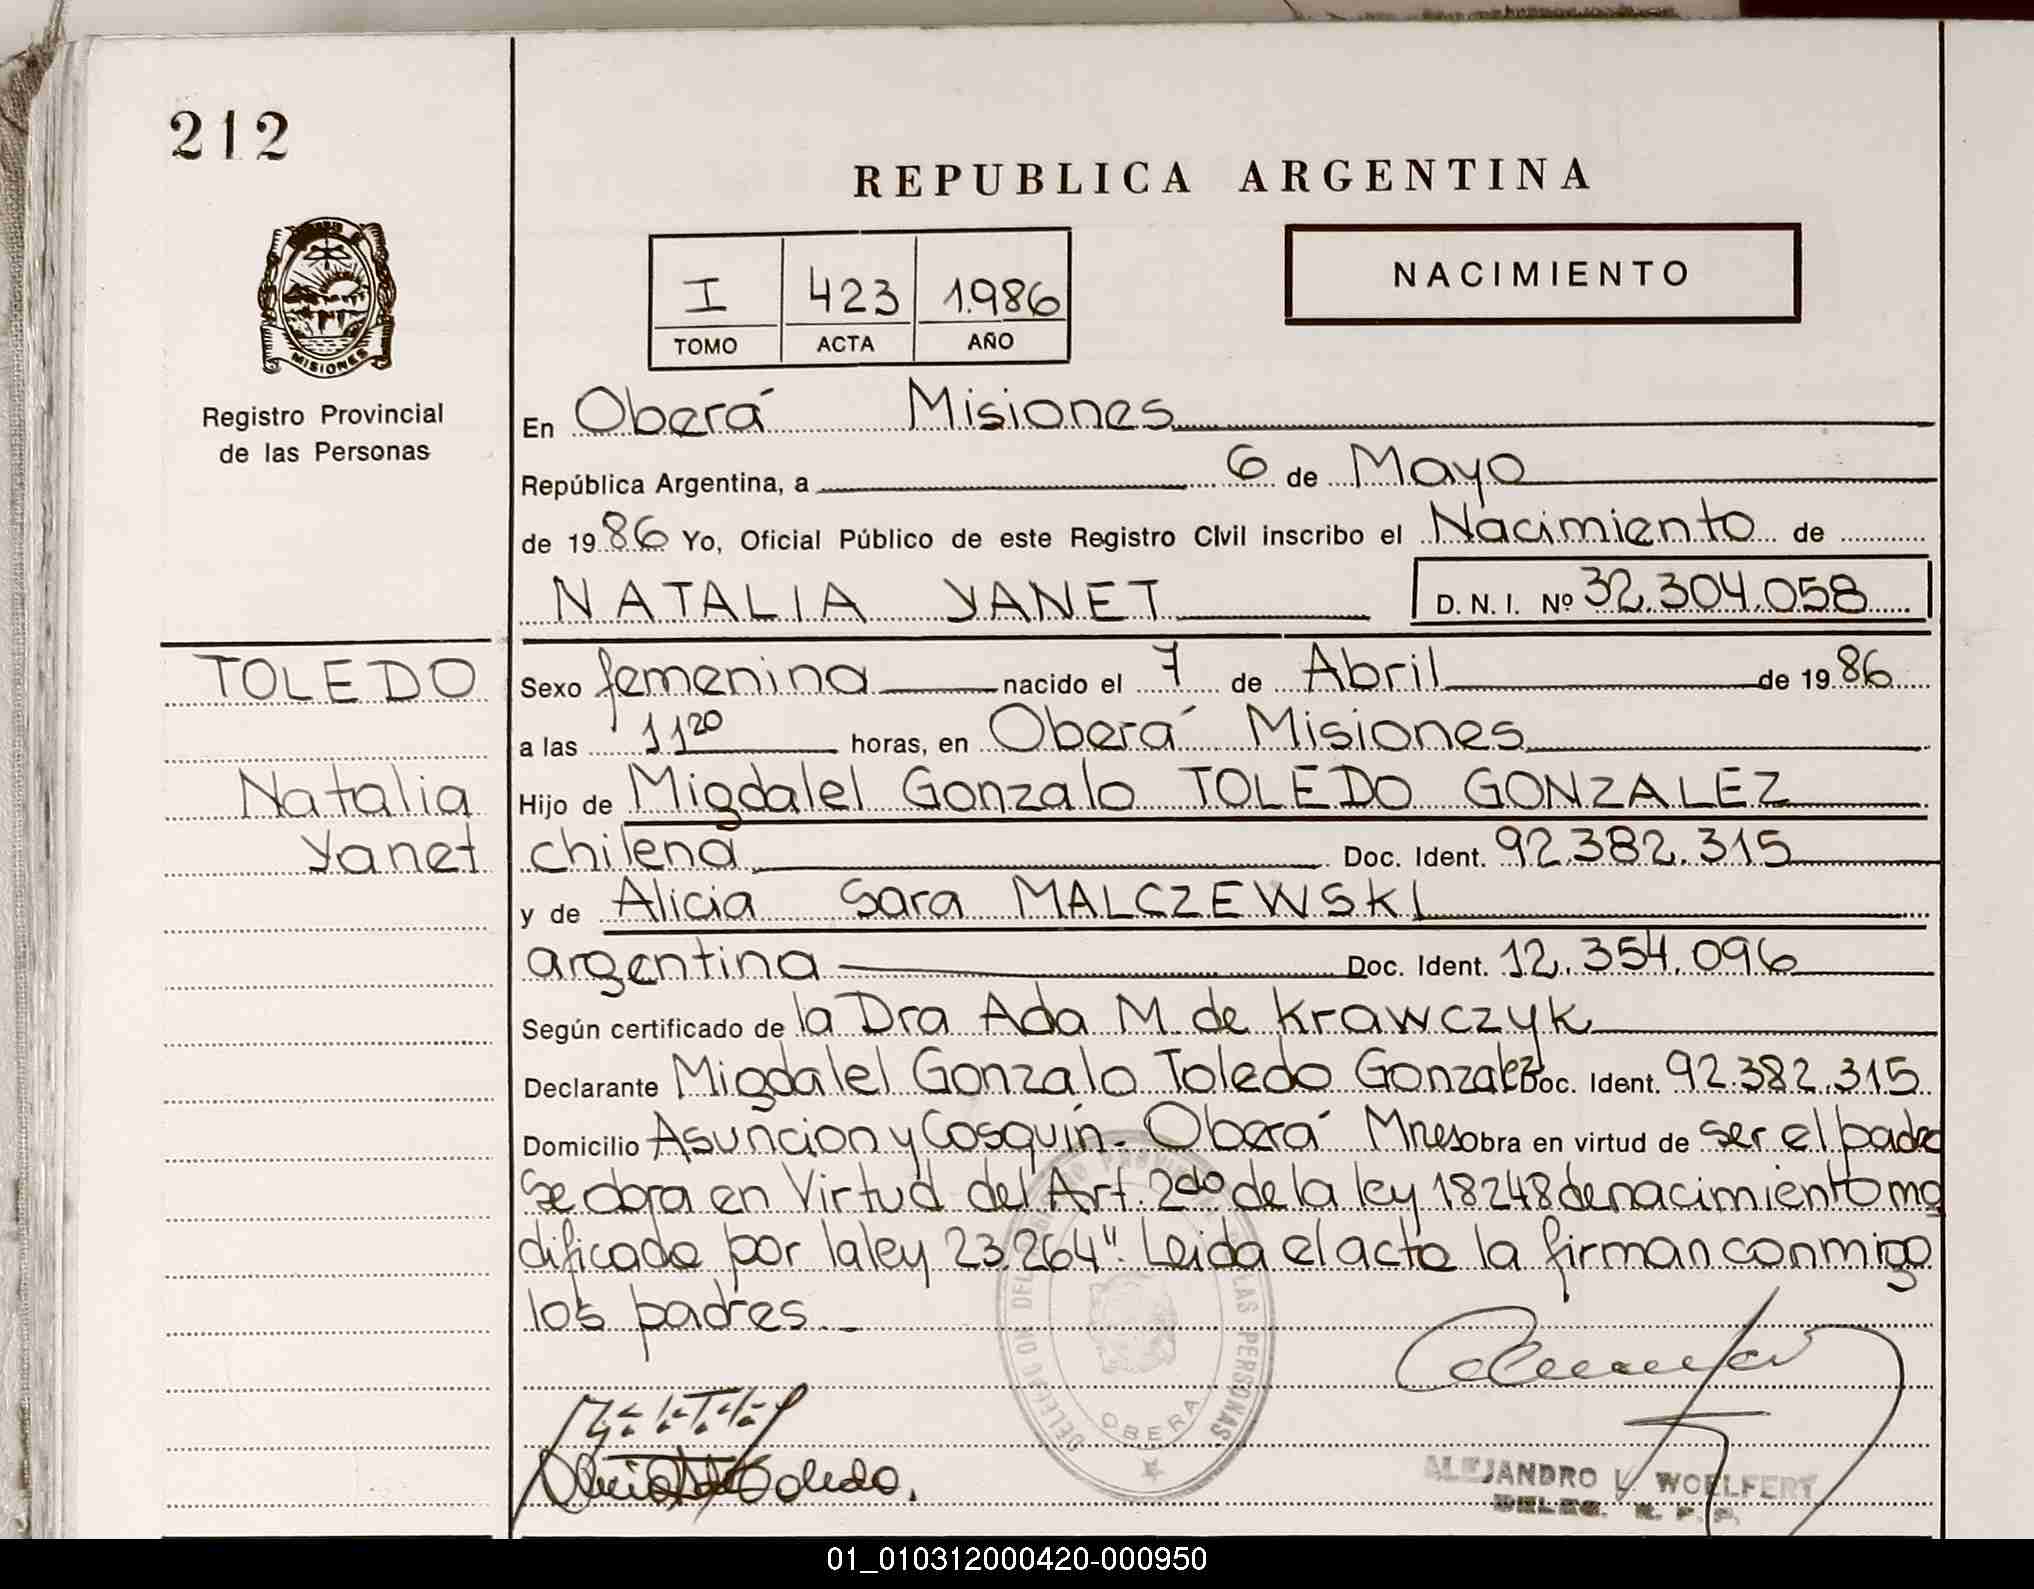 212
REPUBLICA ARGENTINA
MISIONES
Registro Provincial
de las Personas
I 423 1.986
TOMO ACTA AÑO
NACIMIENTO
En Oberá Misiones
República Argentina, a 6 de Mayo
de 1986 Yo, Oficial Público de este Registro Civil inscribo el Nacimiento de
NATALIA YANET D. N. I. Nº 32.304.058
TOLEDO
Natalia
Yanet
Sexo femenina nacido el 7 de Abril de 1986
a las 11 20 horas, en Oberá Misiones
Hijo de Migdalel Gonzalo TOLEDO GONZALEZ
chilena Doc. Ident. 92.382.315
y de Alicia Sara MALCZEWSKI
argentina Doc. Ident. 12.354.096
Según certificado de la Dra Ada M. de Krawczyk
Declarante Migdalel Gonzalo Toledo Gonzalez Doc. Ident. 92.382.315
Domicilio Asuncion y Cosquín - Oberá Mnes obra en virtud de ser el padre
Se obra en Virtud del Art. 2do de la ley 18248 de nacimiento mo
dificado por la ley 23.264". Leida el acta la firman conmigo
los padres. -
DELEGACION DEL REGISTRO PROVINCIAL DE LAS PERSONAS
OBERA
de Toledo.
ALEJANDRO L. WOELFERT
DELEG. R. P. P.
01_010312000420-000950